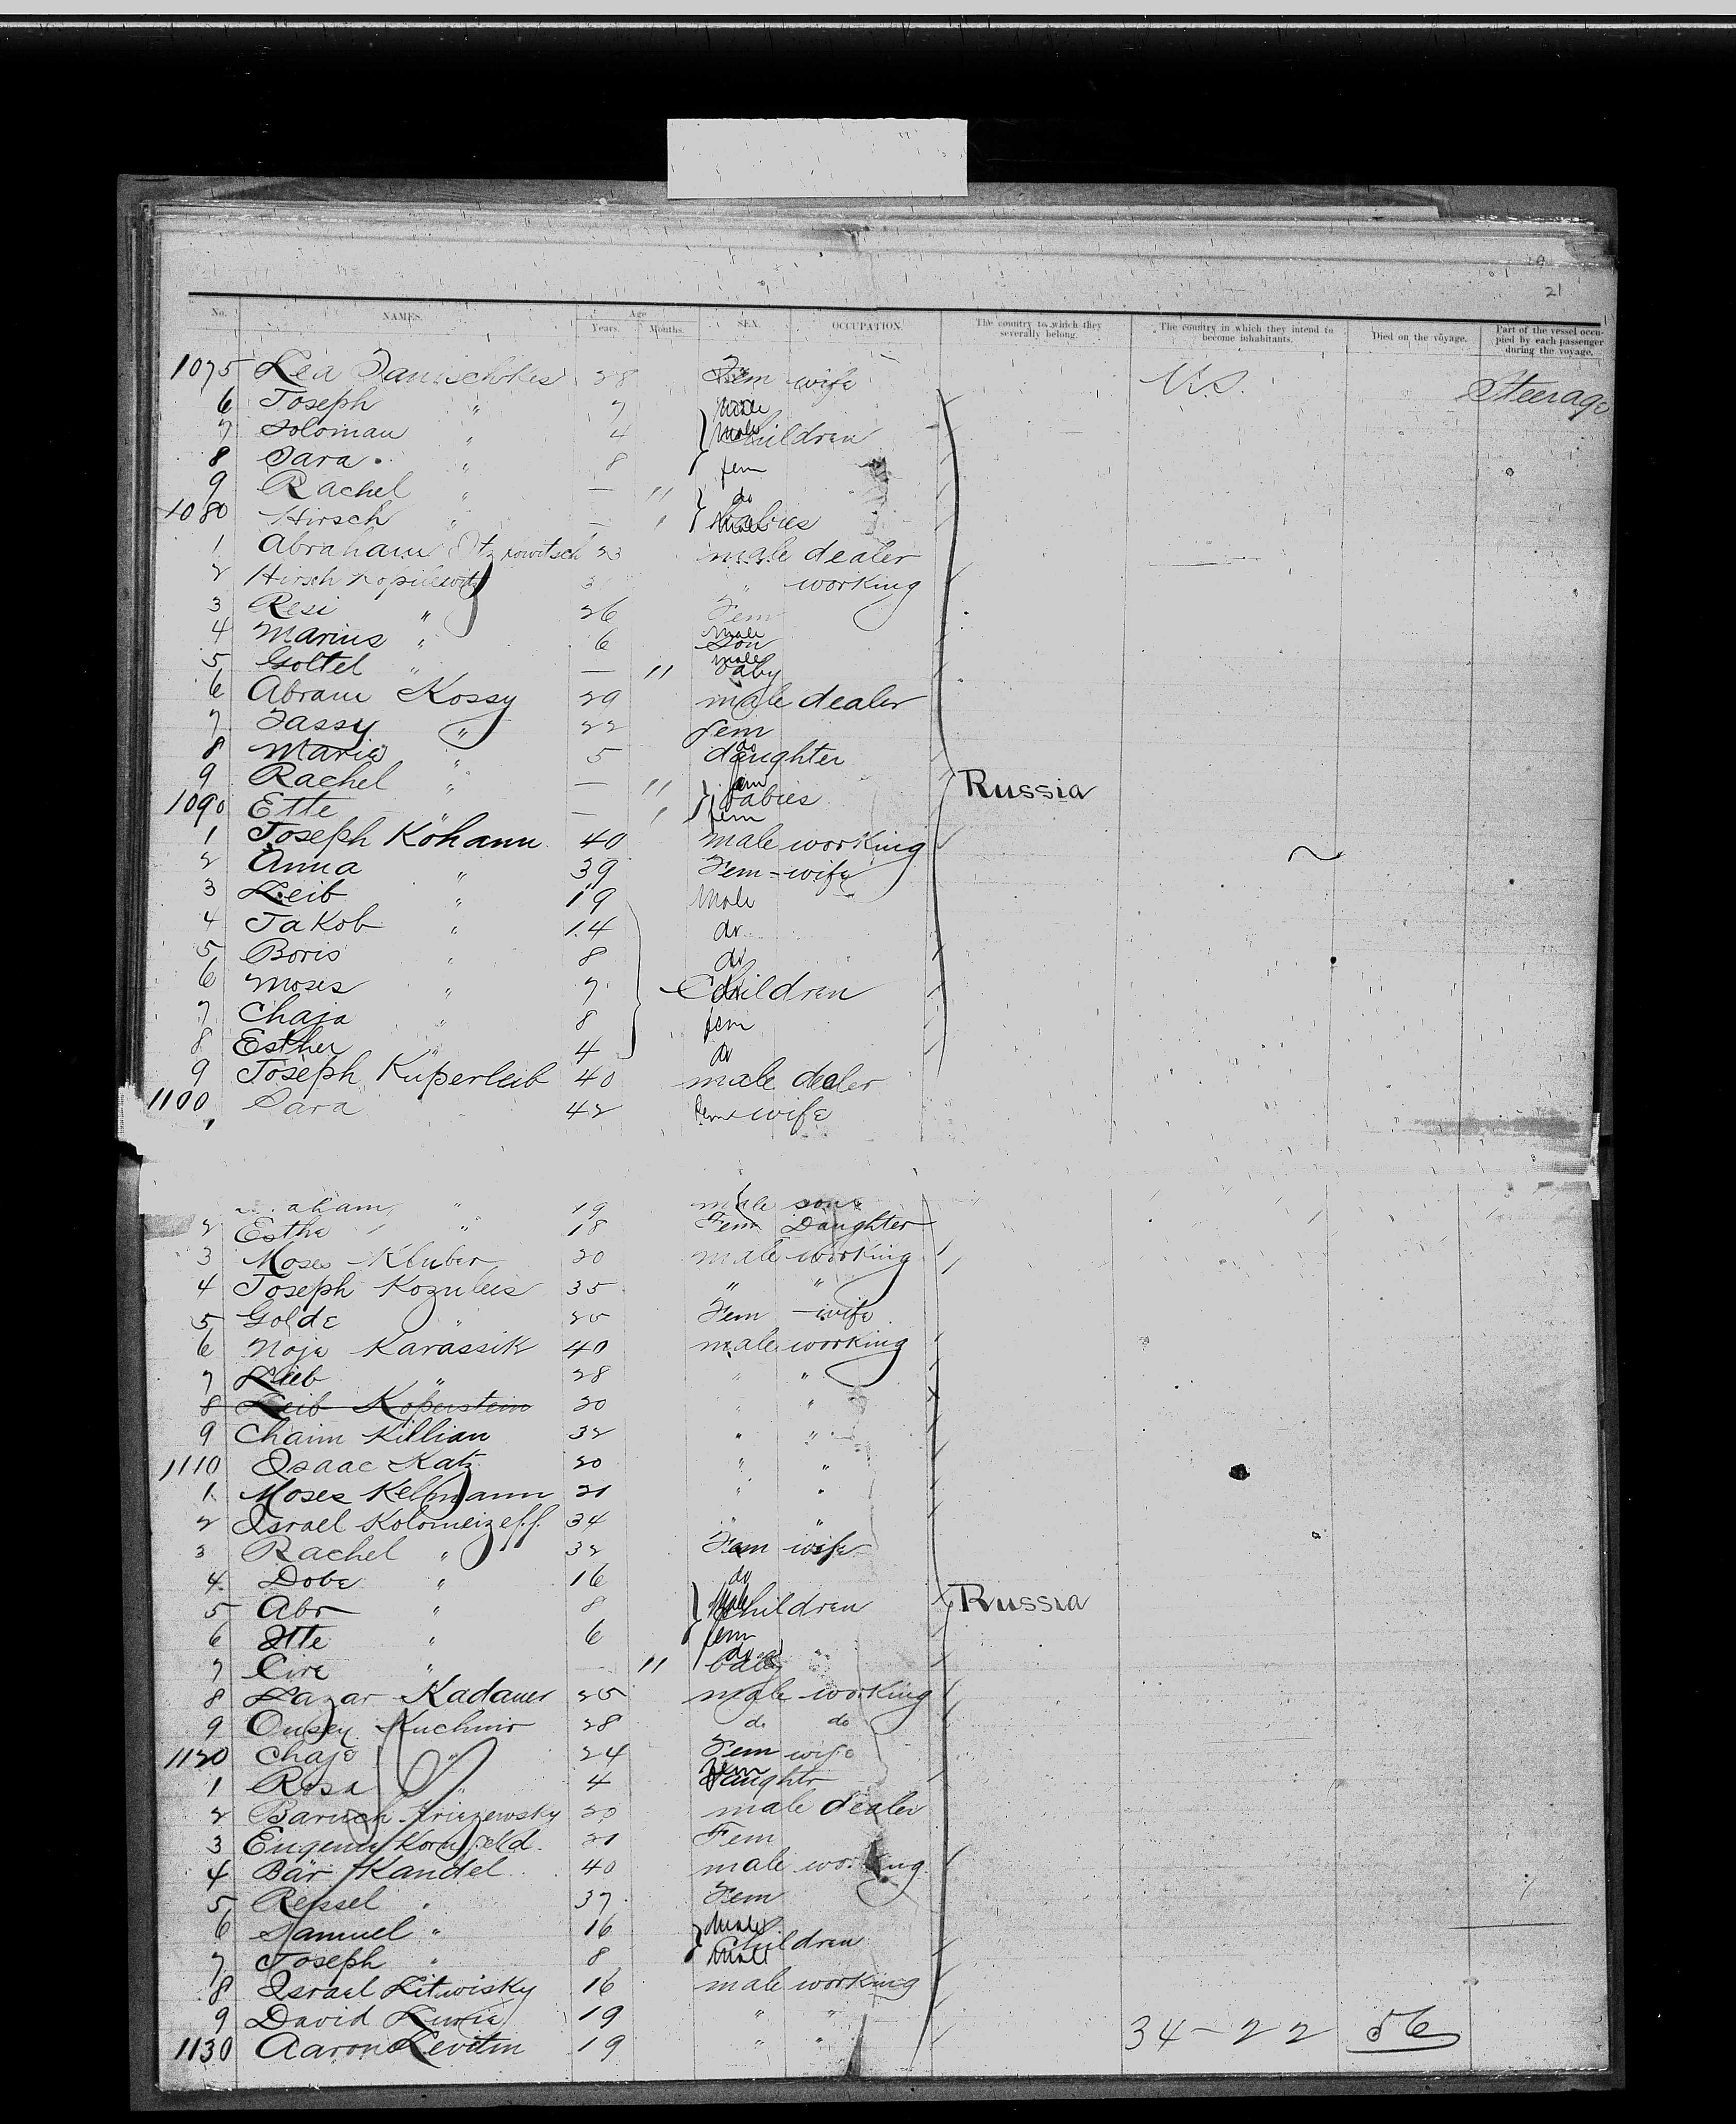 21
No. NAMES. Age Years. Months. SEX. OCCUPATION. The country to which they severally belong. The country in which they intend to become inhabitants. Died on the voyage. Part of the vessel occupied by each passenger during the voyage.
1075 Lea 28 Fem wife U.S. Steerage
6 Joseph " 7 Male
7 Soloman " 4 Male Children
8 Sara " 8 fem
9 Rachel " — 11 do
1080 Hirsch " — " Male babies
1 Abraham 23 male dealer
2 Hirsch Kopilewitz " working
3 Resi " 26 Fem
4 Marius " 6 Male Son
5 Goltel " — 11 male baby
6 Abram Kossy 29 male dealer
7 Tassy " 22 fem
8 Marie " 5 do daughter
9 Rachel " — 11 fem Russia
1090 Ette — " fem babies
1 Joseph Köhann 40 male working
2 Anna " 39 Fem - wife
3 Leib " 19 Male
4 Jakob " 14 do
5 Boris " 8 do
6 Moses " 7 do Children
7 Chaja " 8 fem
8 Esther 4 do
9 Joseph Küperleib 40 male dealer
1100 Sara 42 fem wife
1 aham " 19 male son
2 Esthe " 18 Fem Daughter
3 Moses Kluber 20 male working
4 Joseph Kozuleis 35 " "
5 Golde " 25 Fem - wife
6 Noje Karassik 40 male working
7 Lieb " 28 " "
8 Leib Koperstein 20 " "
9 Chaim Killian 32 " "
1110 Isaac Katz 20 " "
1 Moses Kellmann 21 " "
2 Israel Kolomeizeff 34 " "
3 Rachel " 32 Fem wife
4 Dobe " 16 do
5 Abr " 8 Male Children Russia
6 Itte " 6 fem
7 Cire " — 11 do baby "
8 Lazar Kadauer 25 male working
9 Kuchnir 28 do do
1120 Chaje " 24 Fem wife
1 Rosa " 4 Fem Daughtr
2 Baruch 20 male dealer
3 Eugenie Kornfeld 21 Fem
4 Bär Kandel 40 male working
5 Reissel " 37 Fem
6 Samuel " 16 Male
7 Joseph " 8 Male Children
8 Israel Litwisky 16 male working
9 David Lurie 19 " "
1130 Aaron Levitin 19 " " 34 - 22 56